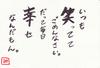 いつも
笑てて
ごめんなさい。
だって毎日
幸せ
なんだもん。